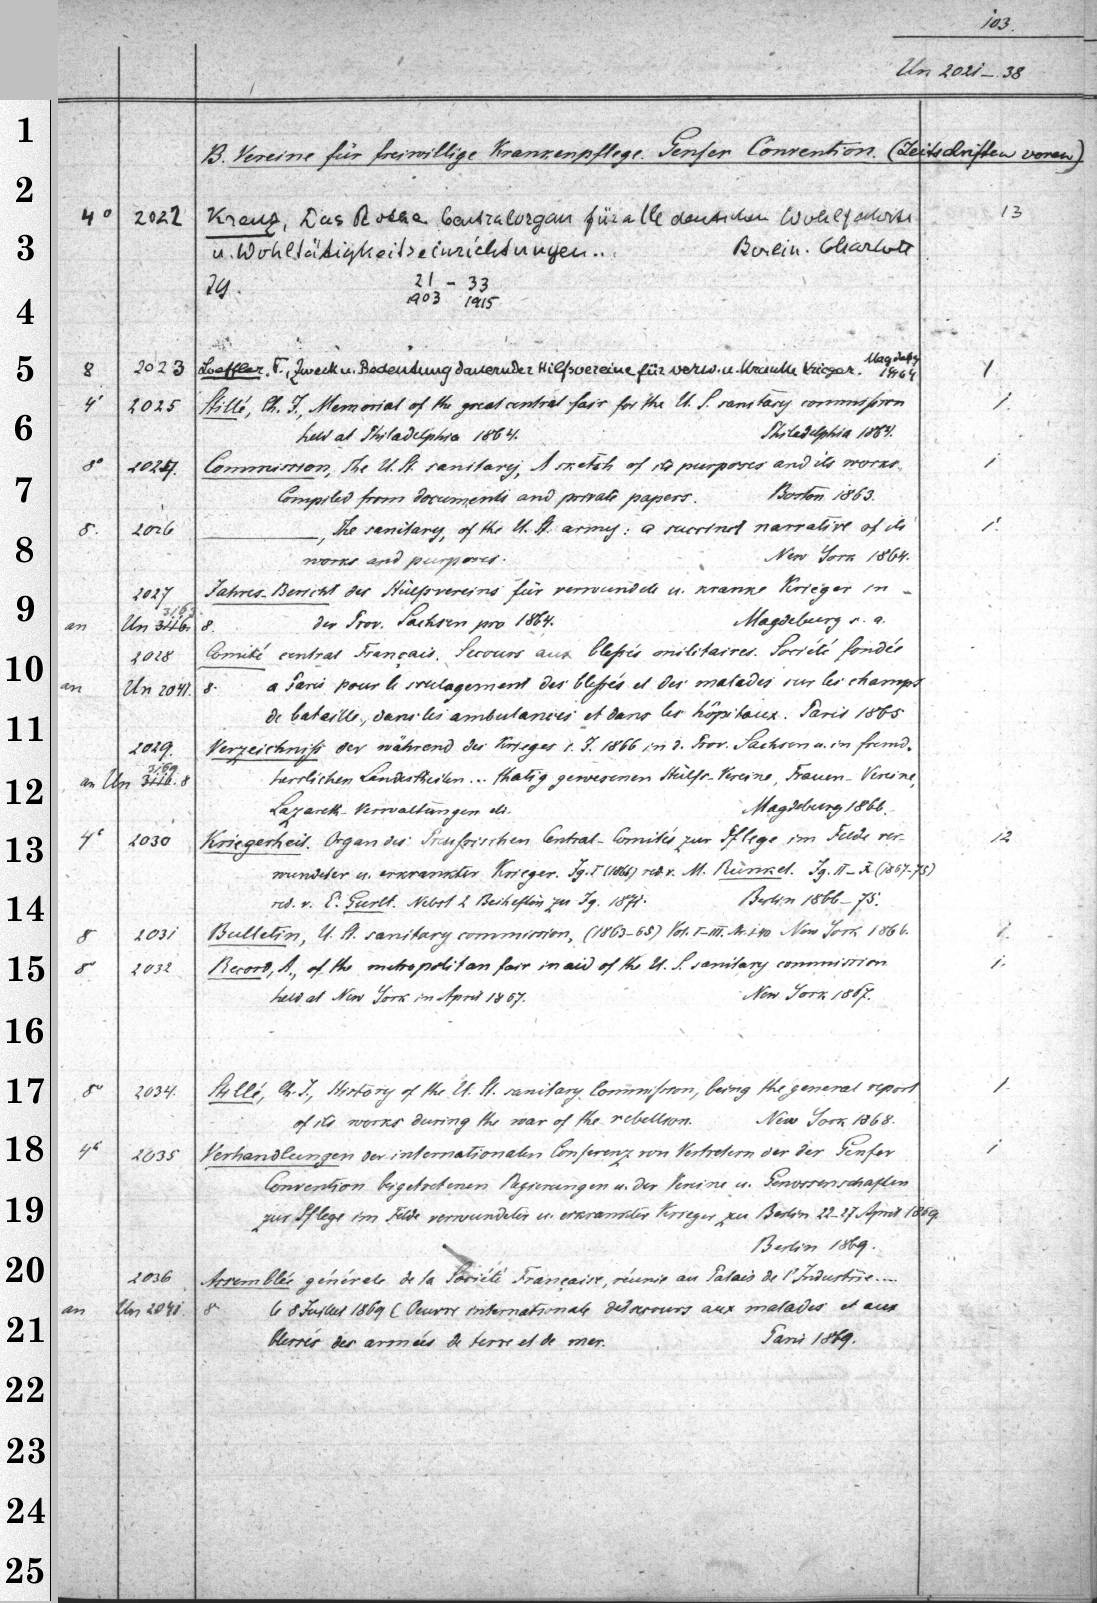 103.
Un 2021-38
1
B. Vereine für freiwillige Krankenpflege. Genfer Convention. (Zeitschriften voran)
2
4° 2022 Kreuz, Das Rothe Centralorgan für alle deutschen Wohlfahrts 13
3 u. Wohltätigkeitseinrichtungen... Berlin. Charlott
Jg. 21 - 33
1903 1915
4
Magdebg
5 8 2023 Loeffler, F., Zweck u. Bedeutung dauernder Hilfsvereine für verw. u. kranke Krieger. 1864 1
4° 2025 Stillé, Ch. J., Memorial of the great central fair for the U. S. sanitary commission 1.
6 held at Philadelphia 1864. Philadelphia 1864.
8° Commission, The U. St. sanitary, A sketch of its purposes and its works. 1
7 Compiled from documents and private papers. Boston 1863.
8. 2026 ———, The sanitary, of the U. St. army: a succinct narrative of its 1.
8 works and purposes. New York 1864.
2027 Jahres-Bericht des Hülfsvereins für verwundete u. kranke Krieger in
9 an Un 8. der Prov. Sachsen pro 1864. Magdeburg s. a.
10 2028 Comité central Français. Secours aux blessés militaires. Société fondée
an Un 2041. 8. a Paris pour le soulagement des blessés et des malades sur les champs
11 de bataille, dans les ambulances et dans les hôpitaux. Paris 1865
2029. Verzeichniss der während des Krieges i. J. 1866 in d. Prov. Sachsen u. in fremd-
3169
12 an Un 3116. 8 herrlichen Landestheilen ... thätig gewesenen Hülfs-Vereine, Frauen-Vereine,
Lazareth-Verwaltungen etc. Magdeburg 1866.
13 4° 2030 Kriegerheil. Organ des Preussischen Central-Comités zur Pflege im Felde ver- 12
wundeter u. erkrankter Krieger. Jg. I (1866) red. v. M. Rünkel. Jg. II-X (1867-75)
14 red. v. E. Gurlt. Nebst 2 Beiheften zu Jg. 1871. Berlin 1866-75.
8 2031 Bulletin, U. St. sanitary commission, (1863-65) Vol. I-III. Nr. 1-40 New York 1866. 1.
15 8° 2032 Record, A, of the metropolitan fair in aid of the U. S. sanitary commission 1.
held at New York in April 1867. New York 1867.
16
17 8° 2034. Stillé, Ch. J., History of the U. St. sanitary Commission, being the general report 1.
of its works during the war of the rebellion. New York 1868.
18 4° 2035 Verhandlungen der internationalen Conferenz von Vertretern der der Genfer 1
Convention beigetretenen Regierungen u. der Vereine u. Genossenschaften
19 zur Pflege im Felde verwundeter u. erkrankter Krieger zu Berlin 22-27 April 1869
Berlin 1869.
20 2036 Assemblée générale de la Société Française, réunie au Palais de l'Industrie....
an Un 2041. 8 le 8 Juillet 1869 (Oeuvre internationale de secours aux malades et aux
21 blessés des armées de terre et de mer. Paris 1869.
22
23
24
25